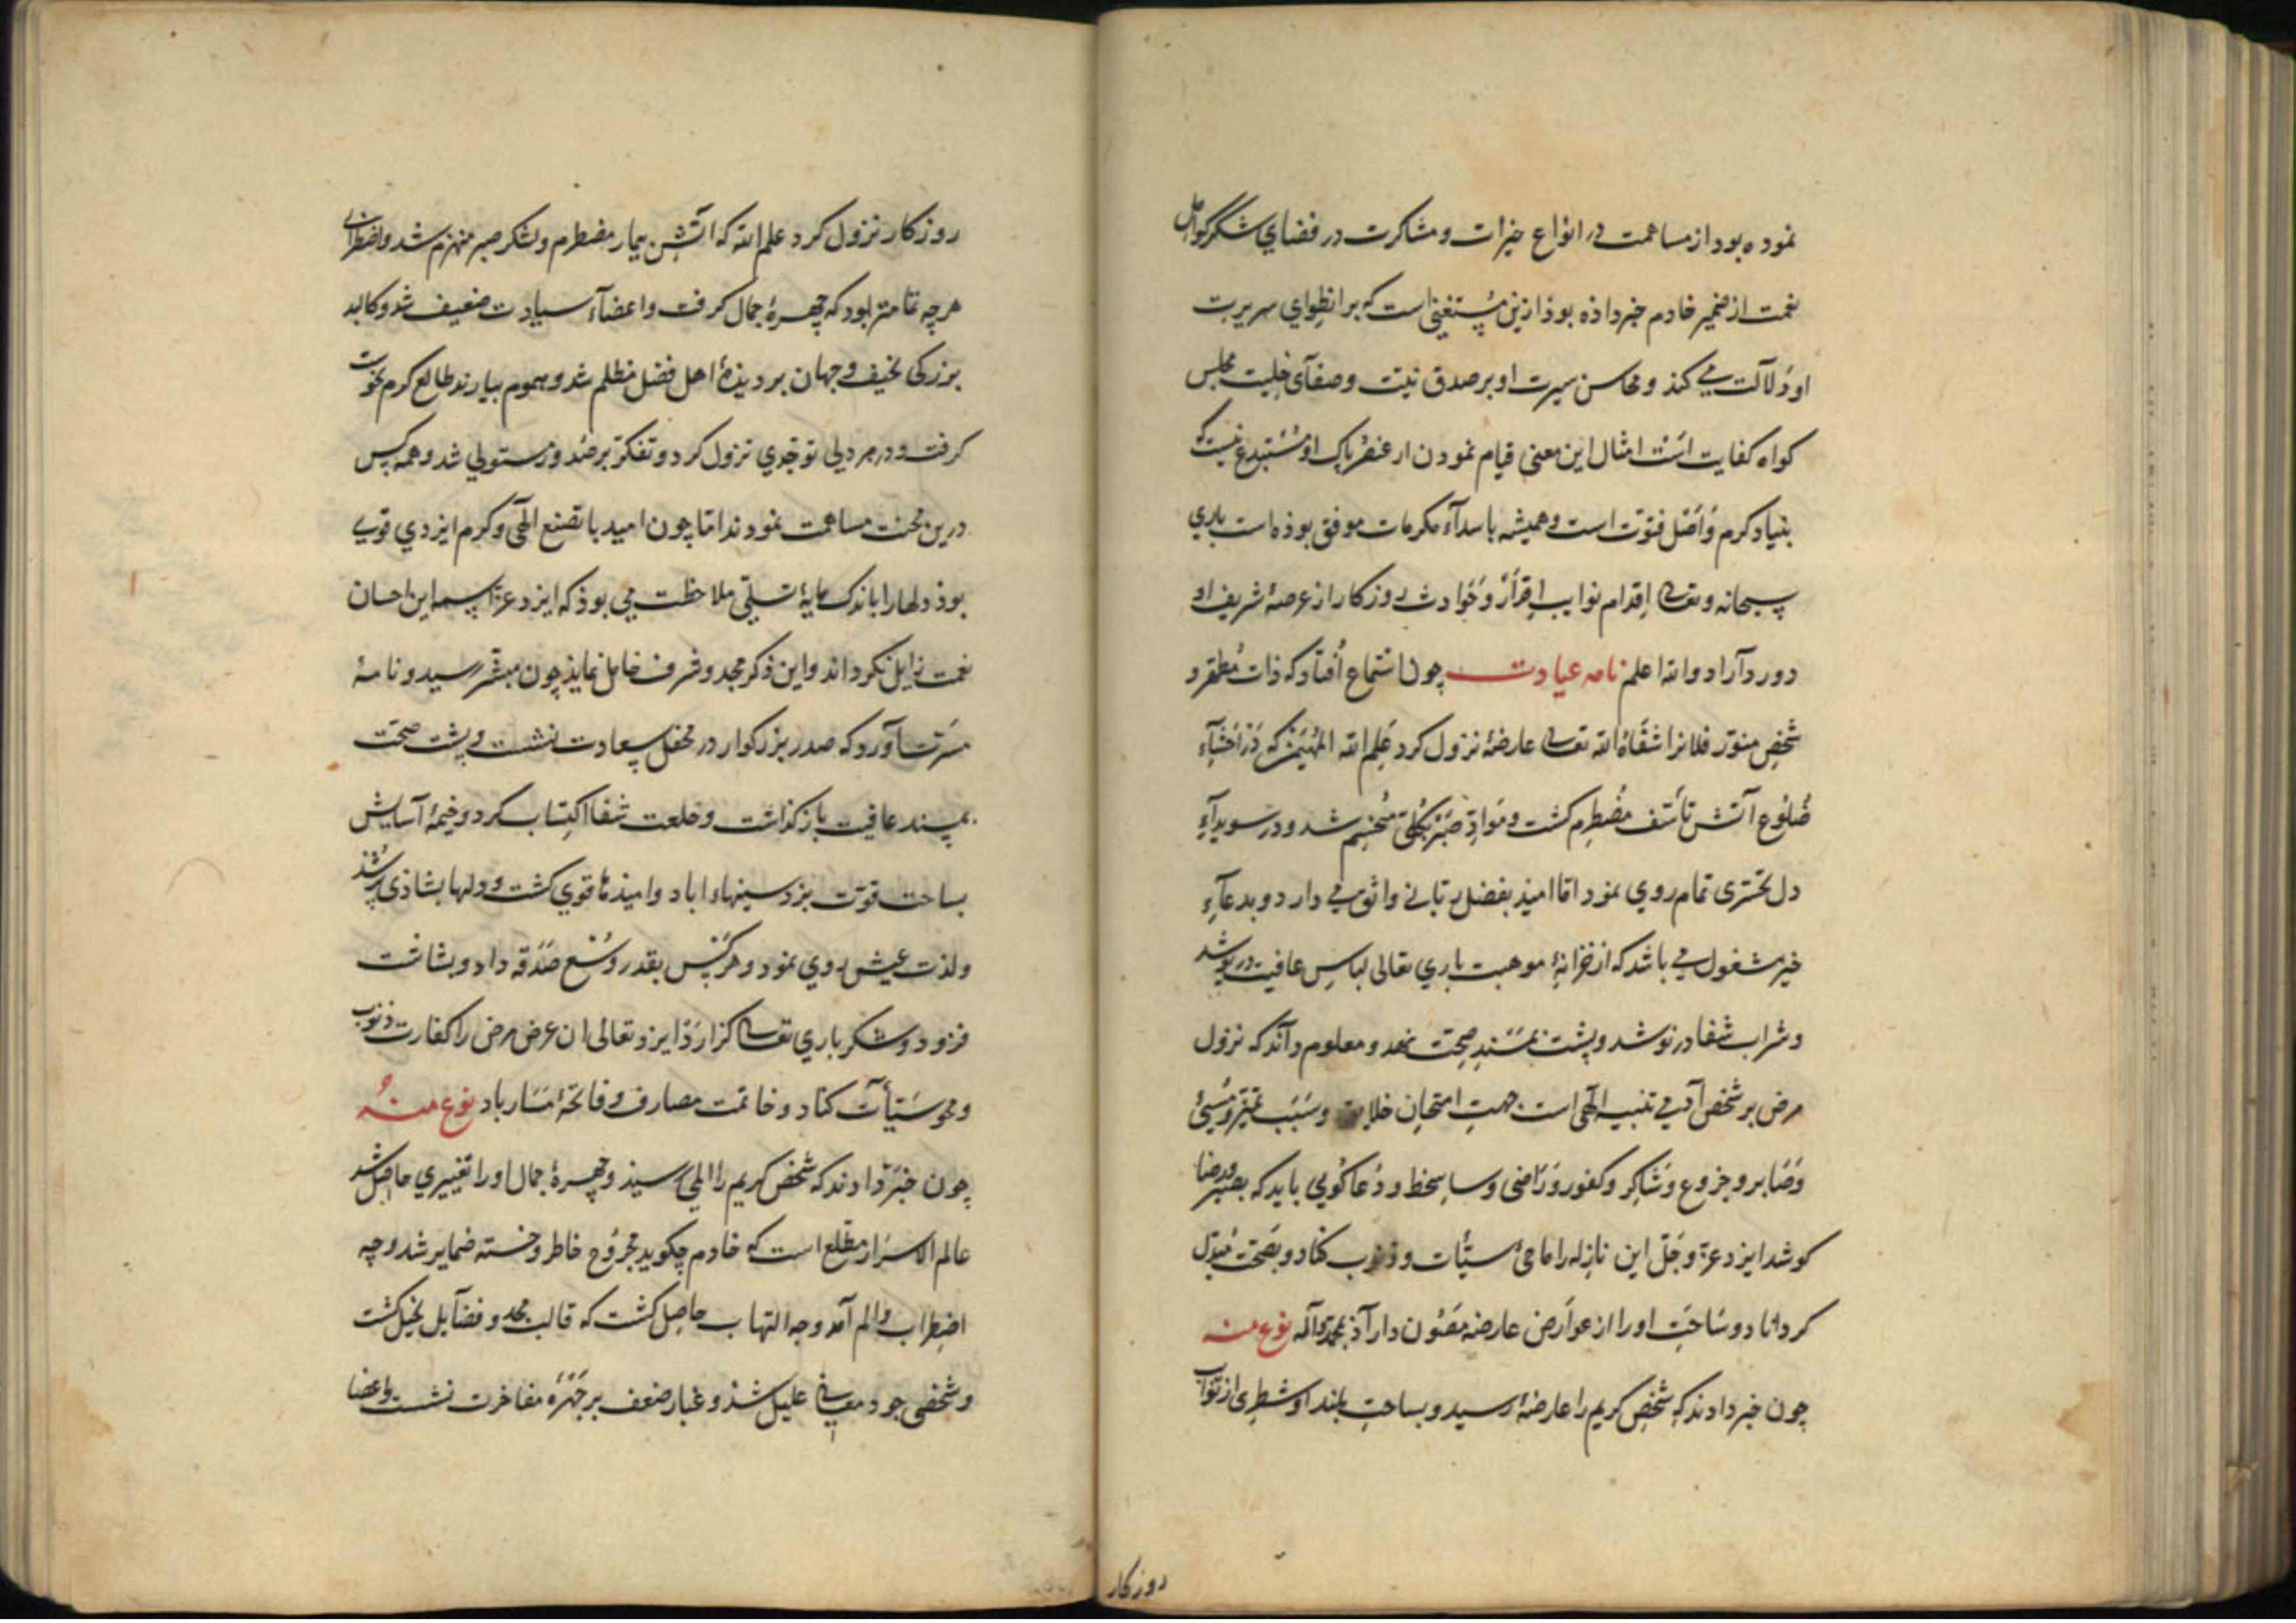 نموده بود از مساهمت در انواع خیرات و مشاکرت در فضای شکر کوامل
نعمت از ضمیر خادم خبر داذه بوذ ازین مستغنی است که بر انطوای سریرت
او دلالت می کند و محاسن سیرت او بر صدق نیت و صفآی خلیت مجلس
کواه کفایت است امثال این معنی قیام نمودن از عنصر باک او مستبدع نیست که
بنیاد کرم و اصل فتوت است و همیشه باسدآء مکرمات موفق بوذه است باری
سبحانه و تعالی اقدام نوایب اقرار و حوادث روزکار از عرصهٔ شریف او
دور دآراد والله اعلم نامه عیادت چون استماع افتاد که ذات مطهر و
شخص منور فلانرا شفاه الله تعالی عارضهٔ نزول کرد علم الله المهیمن که در احشاء
ضلوع آتش تأسف مضطرم کشت و مواد صبر بکلی منحسم شد و در سویدآء
دل تحسری تمام روی نمود اما امیذ بفضل ربانی واثق می دارد و بدعآء
خیر مشغول می باشد که از خزانهٔ موهبت باری تعالی لباس عافیت در پوشد
و شراب شفا در نوشد و پشت بمسند صحت نهد و معلوم داند که نزول
مرض بر شخص آدمی تنبیه الهی است جهت امتحان خلایق و سبب تمیز و مسیئ
و صابر و جزوع و شاکر و کفور و راضی و ساخط و دعاکوی باید که بصبر و رضا
کوشد ایزد عز و جل این نازله را ماحئ سیئات و ذنوب کناد و بصحت مبدل
کرداناد و ساحت او را از عوارض عارضه مصون دارآذ بمحمد و آله نوع منه
چون خبر دادند که شخص کریم را عارضهٔ رسید و بساحت بلند او شطری از نوایب
روزکار
روزکار نزول کرد علم الله که اتش تیمار مضطرم و لشکر صبر منهزم شد و اضطرابی
هرچه تمامتر بود که چهرهٔ جمال کرفت و اعضآء سیادت ضعیف شد و کالبد
بزرکی نحیف و جهان بر دیذهٔ اهل فضل مظلم شد و هموم بیارند طالع کرم نحوست
کرفت و در هر دلی توجعی نزول کرد و تفکر بر صدور مستولی شد و همه کس
درین محنت مساهمت نمودند اما چون امید با تصنع الهی و کرم ایزدی قوی
بوذ دلها را باندک مایهٔ تسلی ملاحظت می بوذ که ایزد عز اسمه این احسان
نعمت زایل نکرداند و این ذکر مجد و شرف خامل نماید چون مبشر رسید و نامهٔ
مسرت آورد که صدر بزرکوار در محفل سعادت نشست و پشت صحت
بمسند عافیت باز کذاشت و خلعت شفا اکتساب کرد و خیمهٔ آسایش
بساحت قوت بزد سینهاء اباد و امیذها قوی کشت و دلها بشاذی پر شذ
و لذت عیش روی نمود و هر کس بقدر وسع صدقه داد و بشاشت
فزود و شکر باری تعالی کزارد ایزد تعالی ان عرض مرض را کفارت ذنوب
و محو سیأت کناد و خاتمت مصارف و فاتحهٔ مسار باد نوع منه
چون خبر دادند که شخص کریم را المی رسیذ و چهرهٔ جمال او را تغییری حاصل شد
عالم الاسرار مطلع است که خادم چکوید مجروح خاطر و خسته ضمایر شد و چه
اضطراب و الم آمد و چه التهاب حاصل کشت که قالب مجد و فضآیل نحیل کشت
و شخص جود معالی علیل شذ و غبار ضعف بر چهره مفاخرت نشست و اعضا